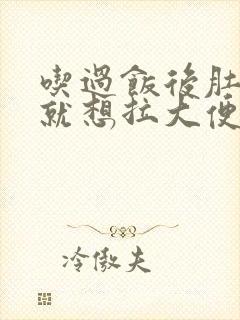 喫過飯後肚
就想拉大便
冷傲夫